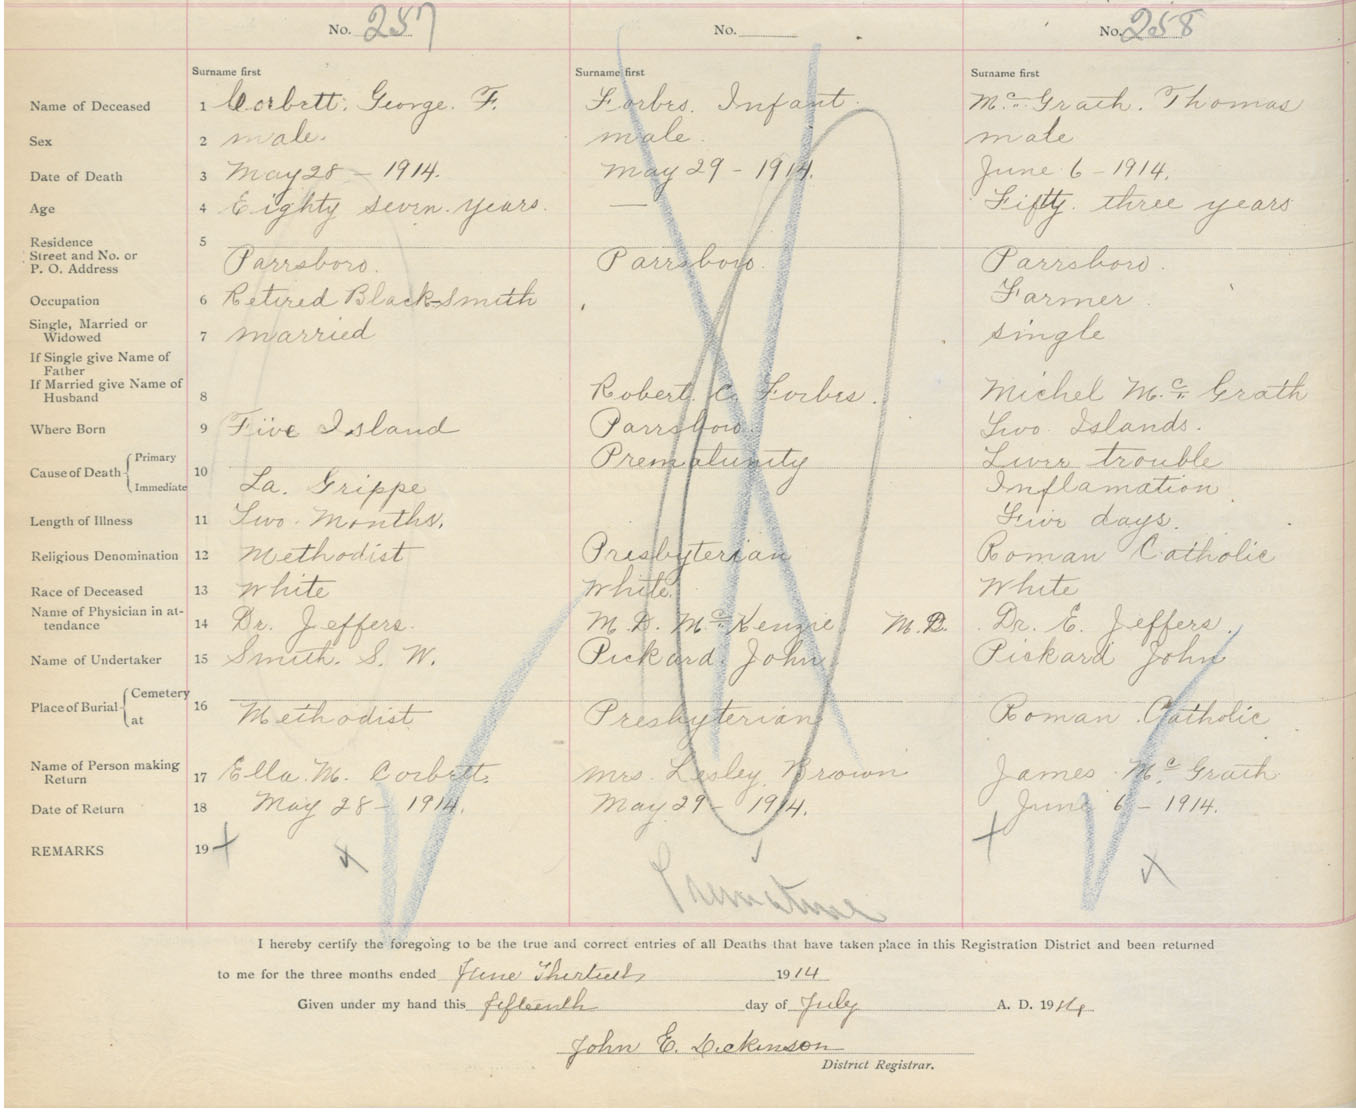 No. 257 No. No. 258
Surname first Surname first Surname first
Name of Deceased 1 Corbett. George. F. Forbes. Infant. Mc Grath. Thomas
Sex 2 male. male. male
Date of Death 3 May 28 - 1914. May 29 - 1914. June 6 - 1914.
Age 4 Eighty seven years. — Fifty three years
Residence 5
Street and No. or
P. O. Address Parrsboro. Parrsboro. Parrsboro.
Occupation 6 Retired Black-smith Farmer
Single, Married or
Widowed 7 married single
If Single give Name of
Father
If Married give Name of
Husband 8 Robert. C. Forbes. Michel Mc Grath
Where Born 9 Five Island Parrsboro. Two Islands.
Cause of Death Primary 10 Prematunity Liver trouble
Immediate La. Grippe Inflamation
Length of Illness 11 Two. Months. Five days.
Religious Denomination 12 Methodist Presbyterian Roman Catholic
Race of Deceased 13 White White. White
Name of Physician in at-
tendance 14 Dr. Jeffers. M. D. Mc Kenzie. M. D. Dr. E. Jeffers.
Name of Undertaker 15 Smith. S. W. Pickard. John Pickard John
Place of Burial Cemetery 16
at Methodist Presbyterian Roman Catholic
Name of Person making
Return 17 Ella. M. Corbett. Mrs. Lesley Brown James Mc Grath
Date of Return 18 May 28 - 1914. May 29 - 1914. June 6 - 1914.
REMARKS 19 + x + x
Premature
I hereby certify the foregoing to be the true and correct entries of all Deaths that have taken place in this Registration District and been returned
to me for the three months ended June Thirtieth 1914
Given under my hand this fifteenth day of July A. D. 1914
John E. Dickinson
District Registrar.